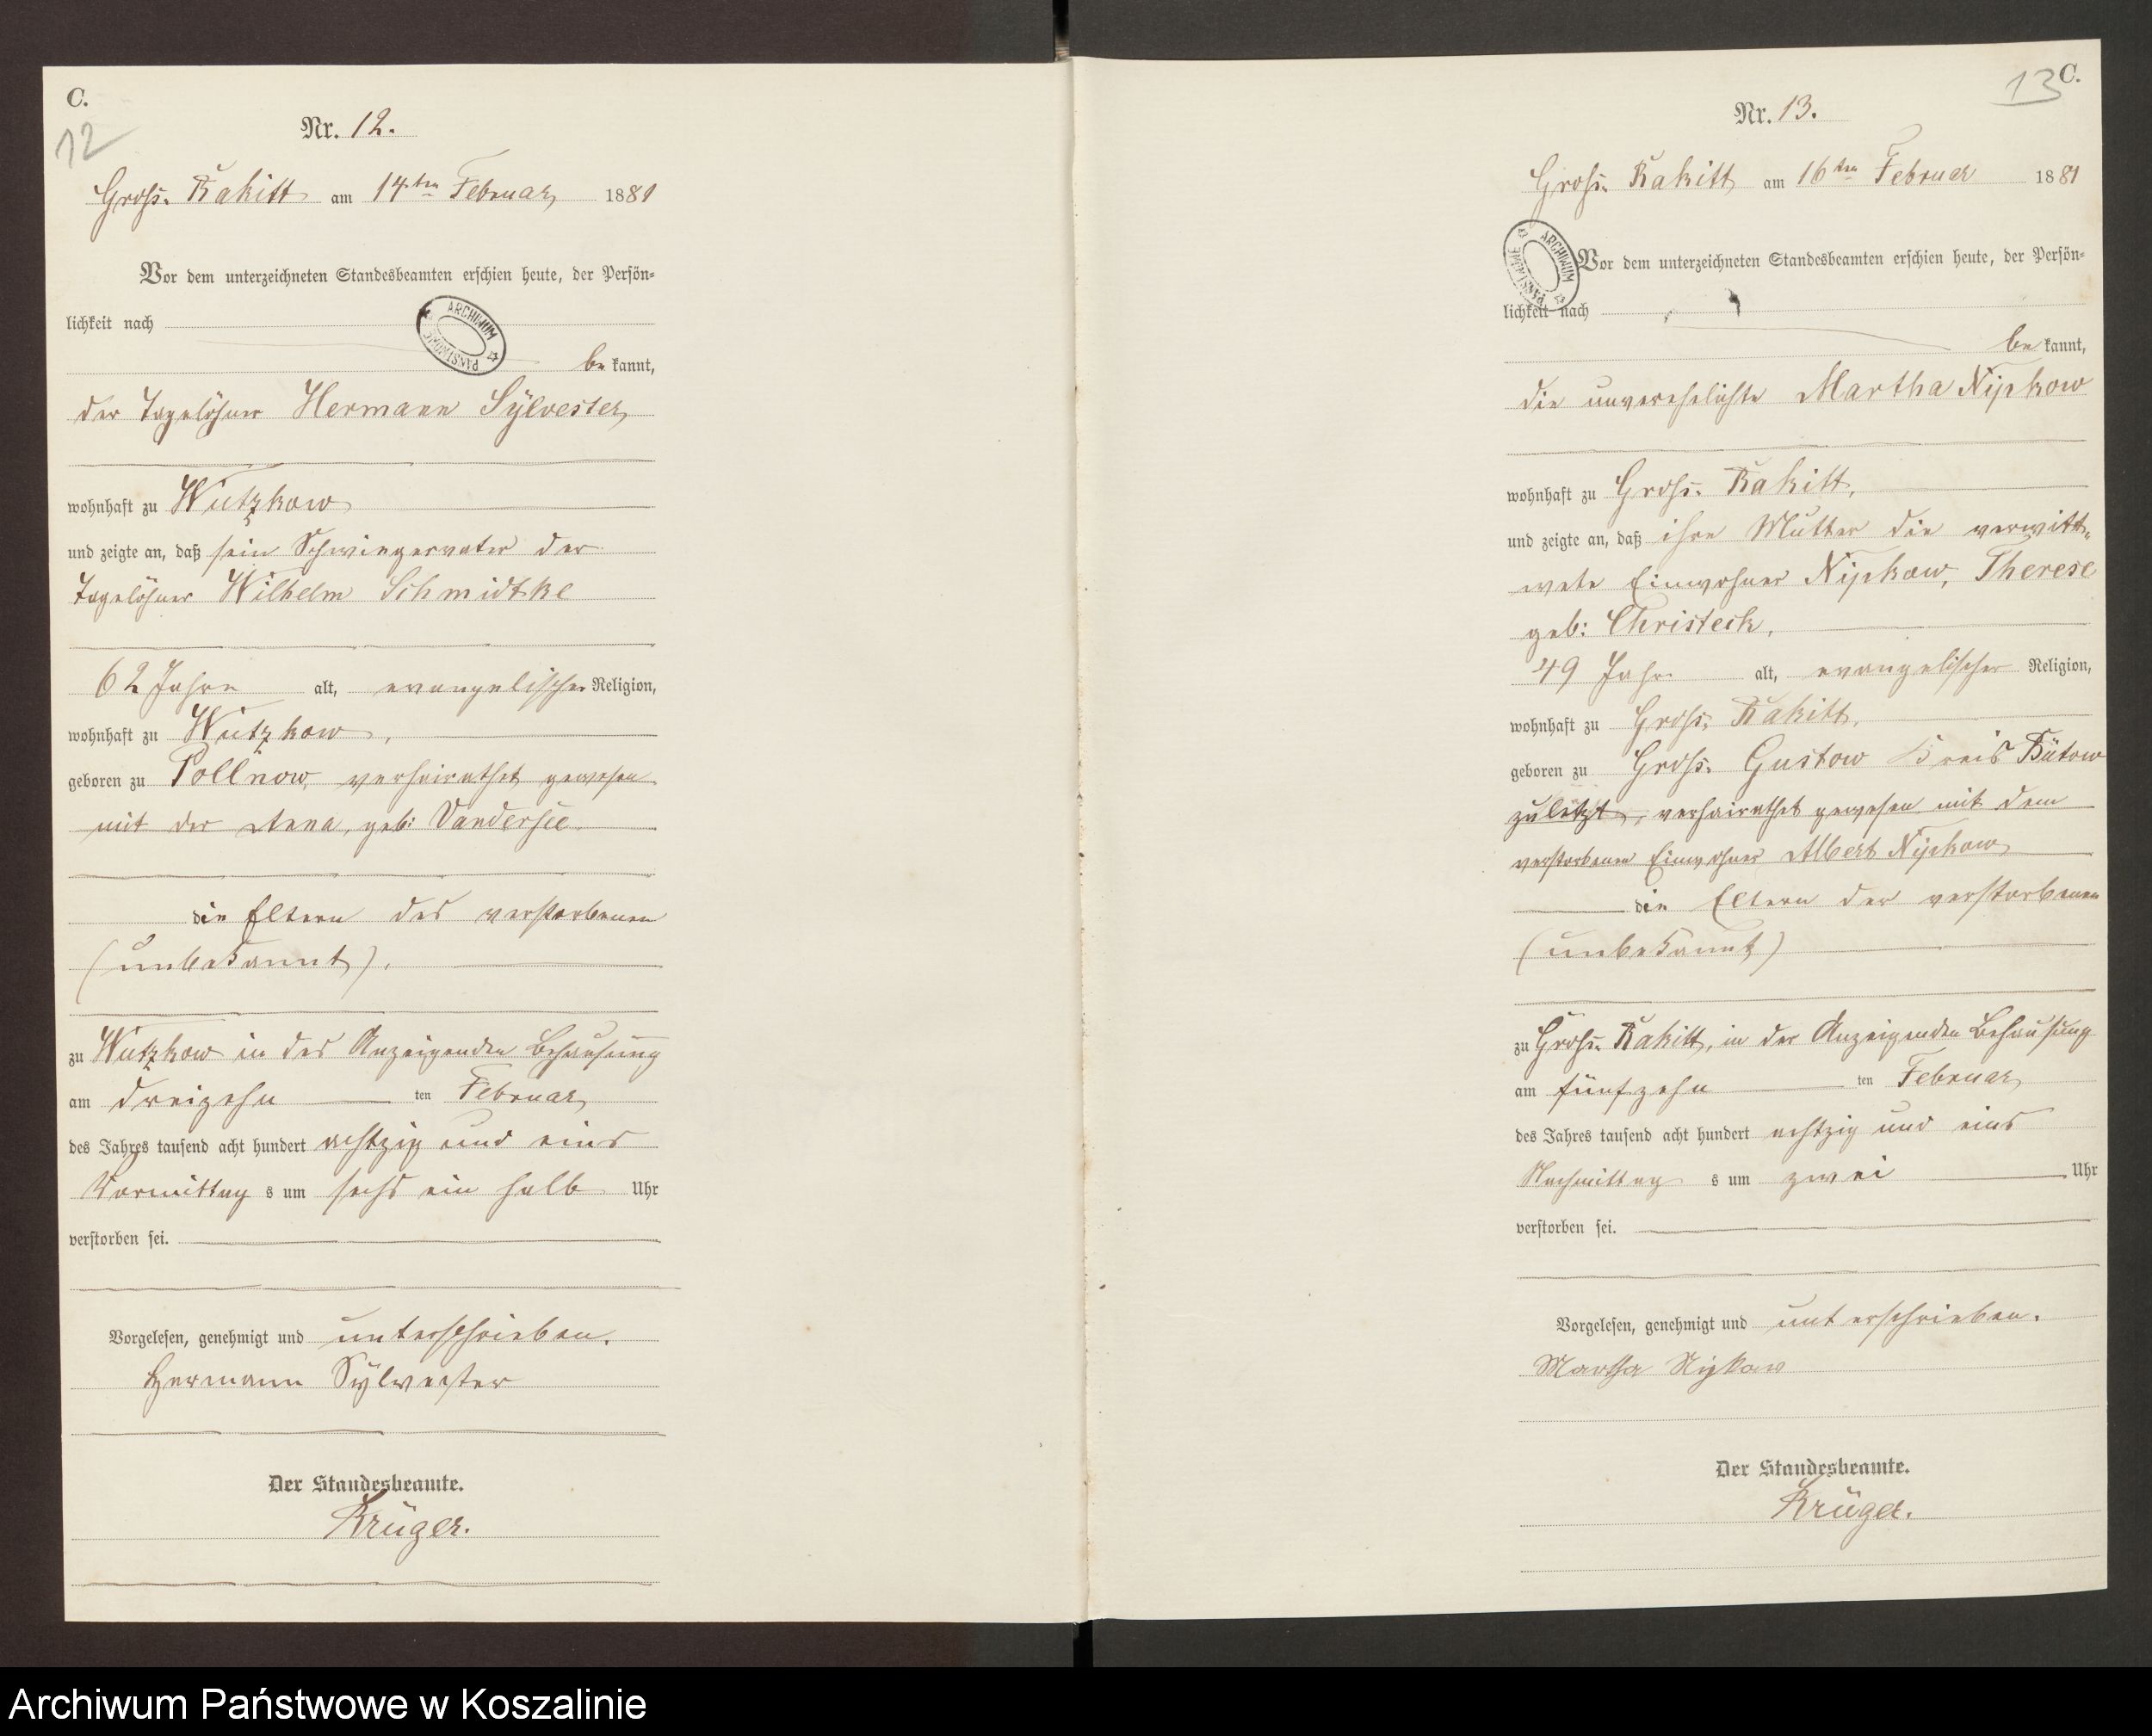 C.
12
Nr. 12.
Gross. Rakitt am 14ten Februar 1881
Vor dem unterzeichneten Standesbeamten erschien heute, der Persön-
lichkeit nach
ARCHIWUM PAŃSTWOWE
be kannt,
der Tagelöhner Hermann Sylvester
wohnhaft zu Wutzkow
und zeigte an, daß sein Schwiegervater der
Tagelöhner Wilhelm Schmidtke
62 Jahre alt, evangelischer Religion,
wohnhaft zu Wutzkow,
geboren zu Pollnow, verheirathet gewesen
mit der Anna, geb: Vandersee
die Eltern des verstorbenen
(unbekannt).
zu Wutzkow in des Anzeigenden Behausung
am dreizehn ten Februar
des Jahres tausend acht hundert achtzig und eins
Vormittag s um sechs ein halb Uhr
verstorben sei.
Vorgelesen, genehmigt und unterschrieben.
Hermann Sylwester
Der Standesbeamte.
Krüger.
13
C.
Nr. 13.
Gross. Rakitt am 16ten Februar 1881
Vor dem unterzeichneten Standesbeamten erschien heute, der Persön-
lichkeit nach
ARCHIWUM PAŃSTWOWE
be kannt,
die unverehelichte Martha Nipkow
wohnhaft zu Gross. Rakitt,
und zeigte an, daß ihre Mutter die verwitt-
wete Einwohner Nipkow, Therese
geb: Christeck,
49 Jahr alt, evangelischer Religion,
wohnhaft zu Gross. Rakitt,
geboren zu Gross. Gustow Kreis Bütow
zuletzt, verheirathet gewesen mit dem
verstorbenen Einwohner Albert Nipkow
die Eltern der verstorbenen
(unbekannt)
zu Gross. Rakitt, in der Anzeigenden Behausung
am fünfzehn ten Februar
des Jahres tausend acht hundert achtzig und eins
Nachmittag s um zwei Uhr
verstorben sei.
Vorgelesen, genehmigt und unterschrieben.
Martha Nipkow
Der Standesbeamte.
Krüger.
Archiwum Państwowe w Koszalinie